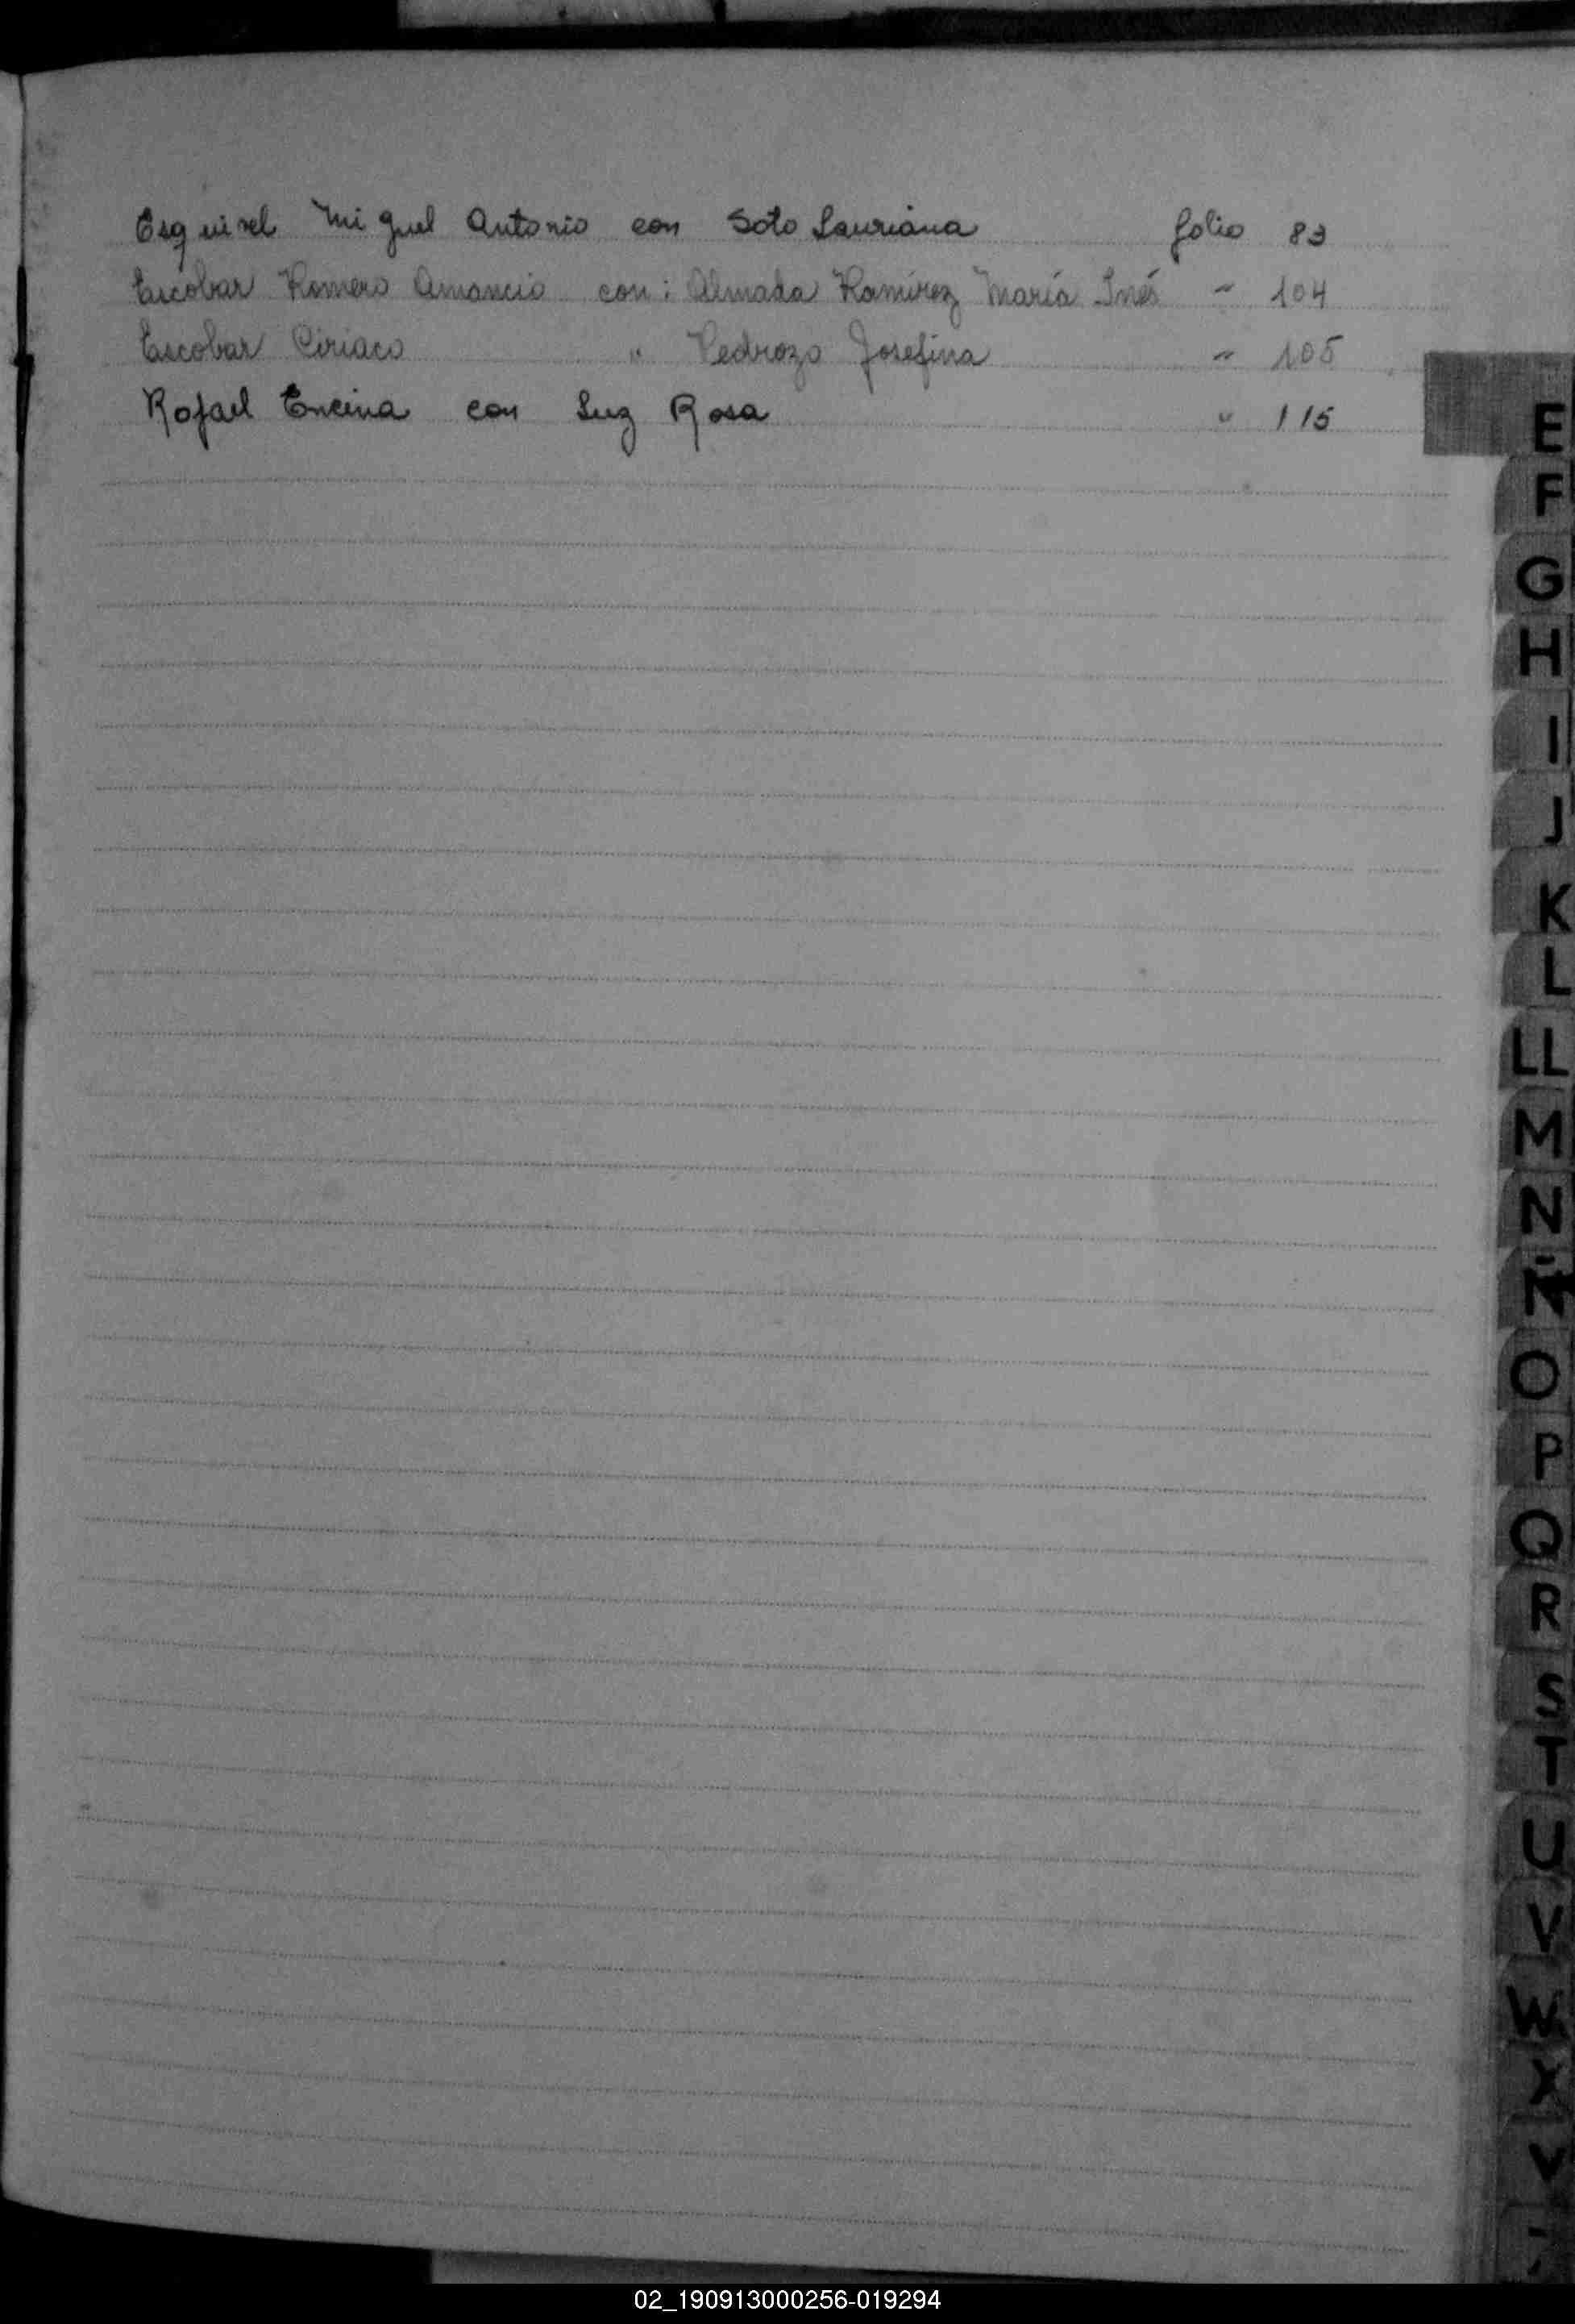 Esquivel Miguel Antonio con Soto Lauriana folio 83
Escobar Romero Amancio con: Almada Ramírez María Inés " 104
Escobar Ciriaco " Pedrozo Josefina " 105
Rafael Encina con Luz Rosa " 115
E
F
G
H
I
J
K
L
LL
M
N
Ñ
O
P
Q
R
S
T
U
V
W
X
Y
02_190913000256-019294